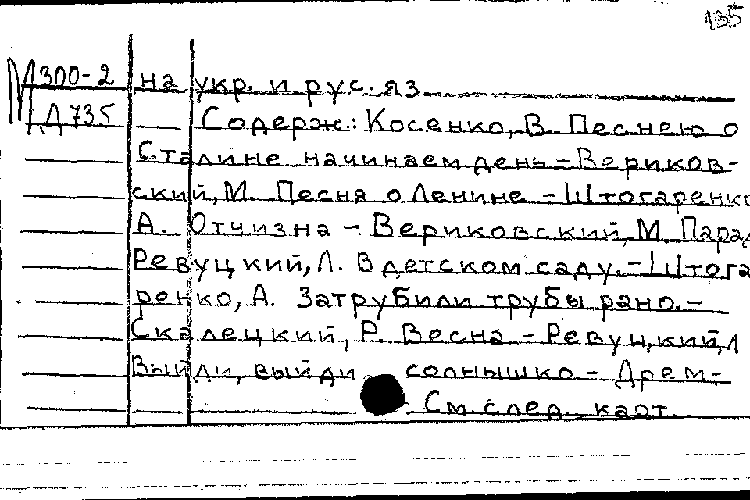 135
М300-2 на укр. и рус. яз.
Д735 Содерж: Косенко, В. Песнею о
Сталине начинаем день - Вериков-
ский, М. Песня о Ленине - Штогаренко
А. Отчизна - Вериковский, М. Парад
Ревуцкий, Л. В детском саду. - Штога
ренко, А. Затрубили трубы рано. -
Скалецкий, Р. Весна - Ревуцкий, Л
Выйди, выйди солнышко - Дрем-
См. след. карт.